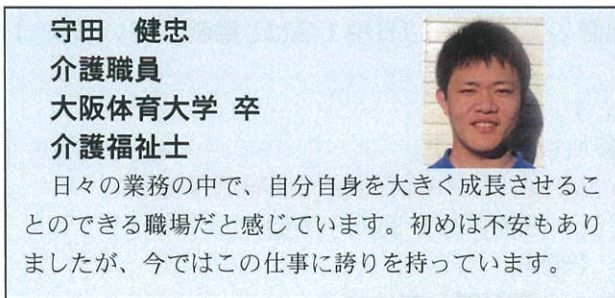 守田　健忠
介護職員
大阪体育大学 卒
介護福祉士
　日々の業務の中で、自分自身を大きく成長させるこ
とのできる職場だと感じています。初めは不安もあり
ましたが、今ではこの仕事に誇りを持っています。